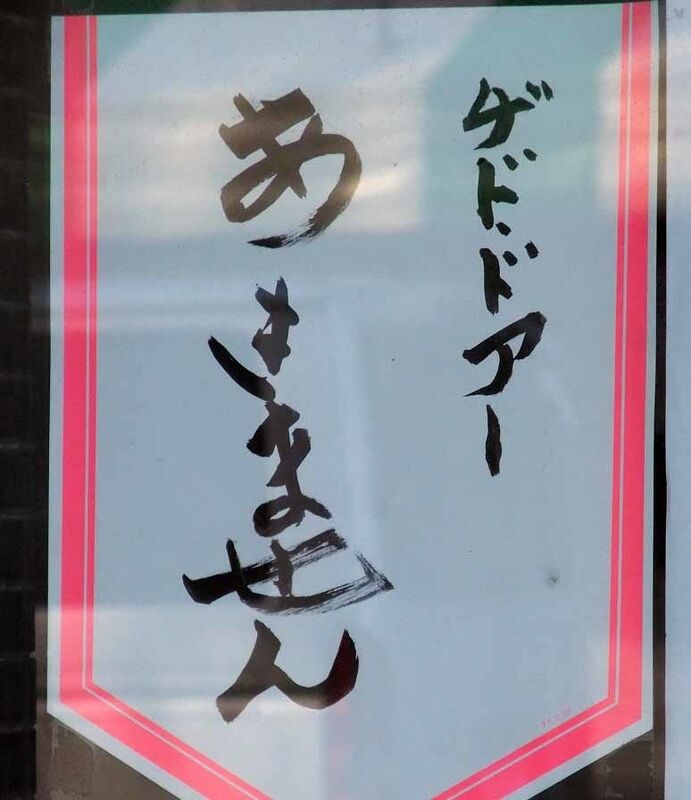 ゲドドアー
あきません